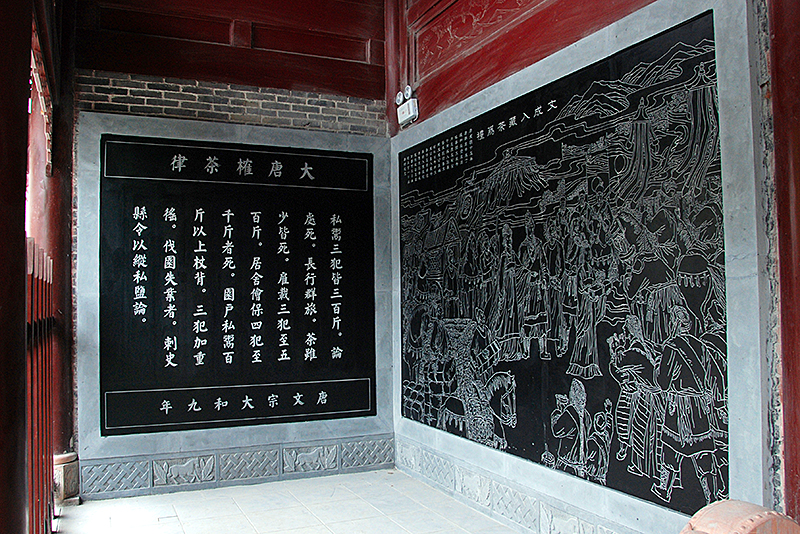 大唐榷茶律
私鬻三犯皆三百斤。論
處死。長行群旅。茶雖
少皆死。雇載三犯至五
百斤。居舍儈保四犯至
千斤者死。園戶私鬻百
斤以上杖背。三犯加重
徭。伐園失業者。刺史
縣令以縱私鹽論。
唐文宗大和九年
文成入藏茶爲禮